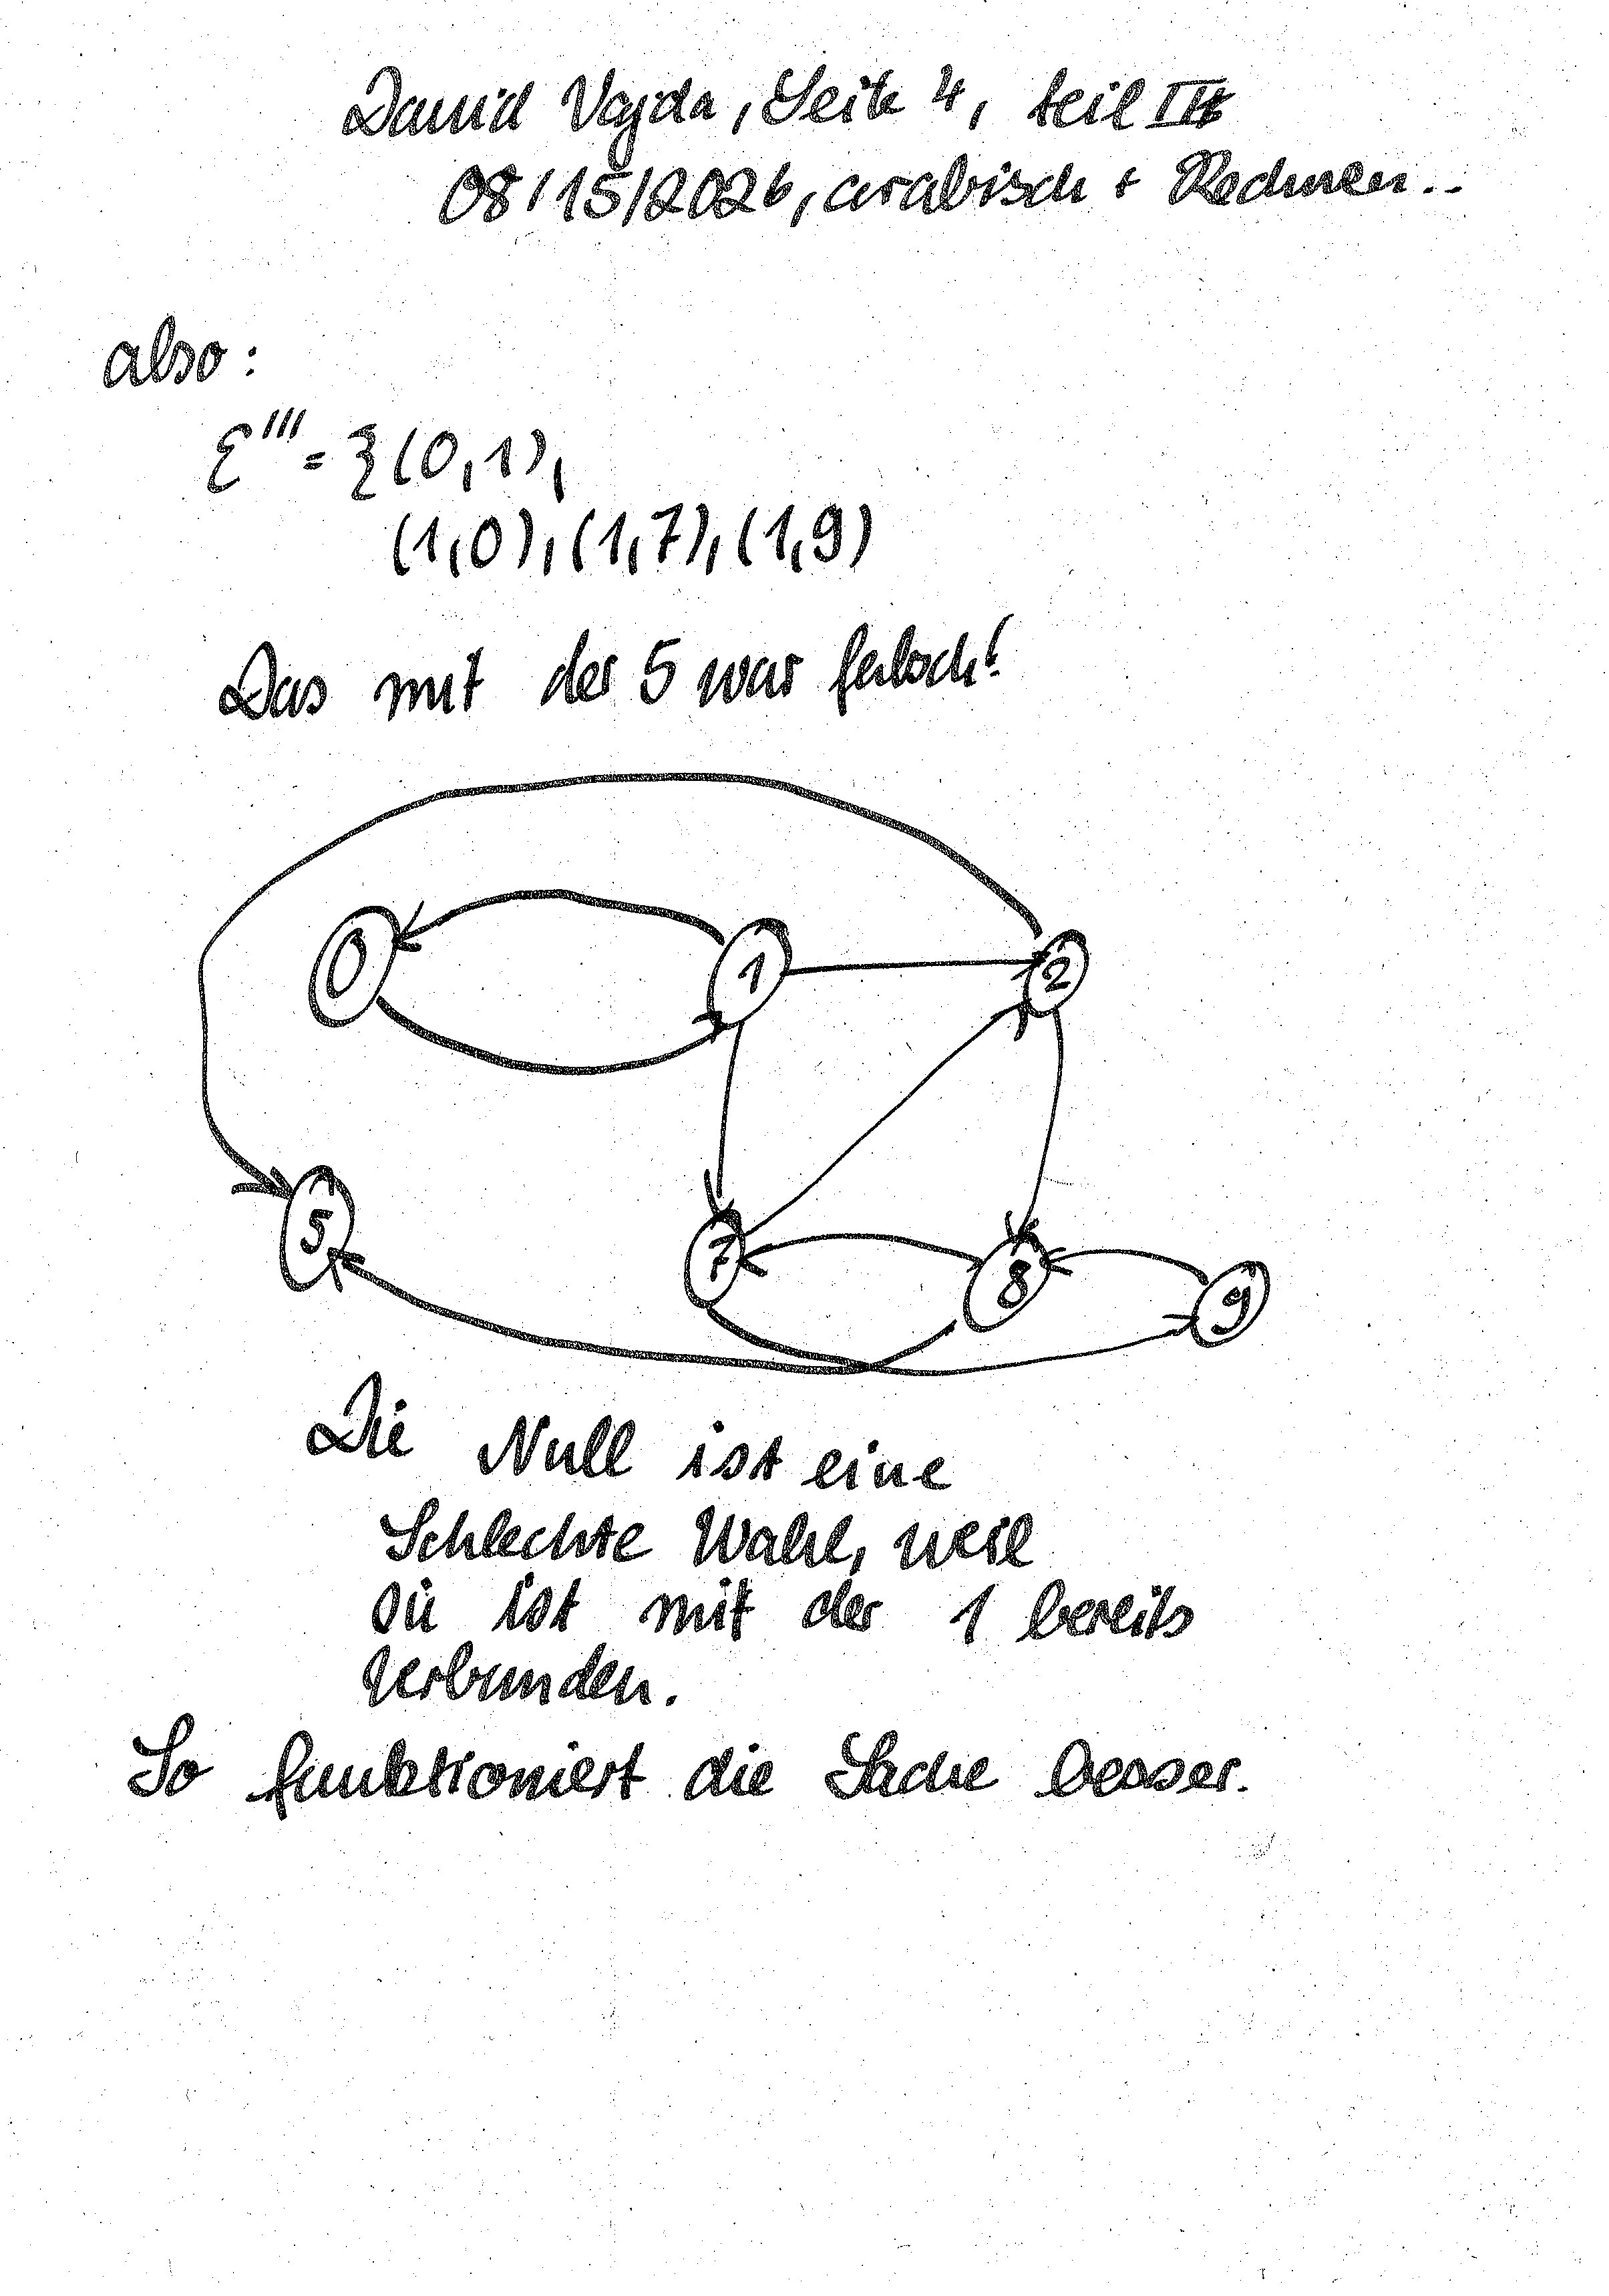 David Vajda, Seite 4, teil III
08/15/2026, arabisch + Rechnen..
also:
E''' = {(0,1),
(1,0),(1,7),(1,9)
Das mit der 5 war falsch!
0 1 2
5 7 8 9
Die Null ist eine
Schlechte Wahl, weil
sie ist mit der 1 bereits
verbunden.
So funktioniert die Sache besser.